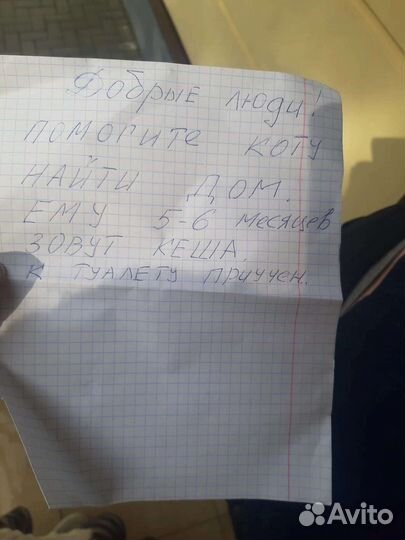 Добрые люди!
ПОМОГИТЕ КОТУ
НАЙТИ ДОМ.
ЕМУ 5-6 месяцев
ЗОВУТ КЕША.
К ТУАЛЕТУ ПРИУЧЕН.
Avito